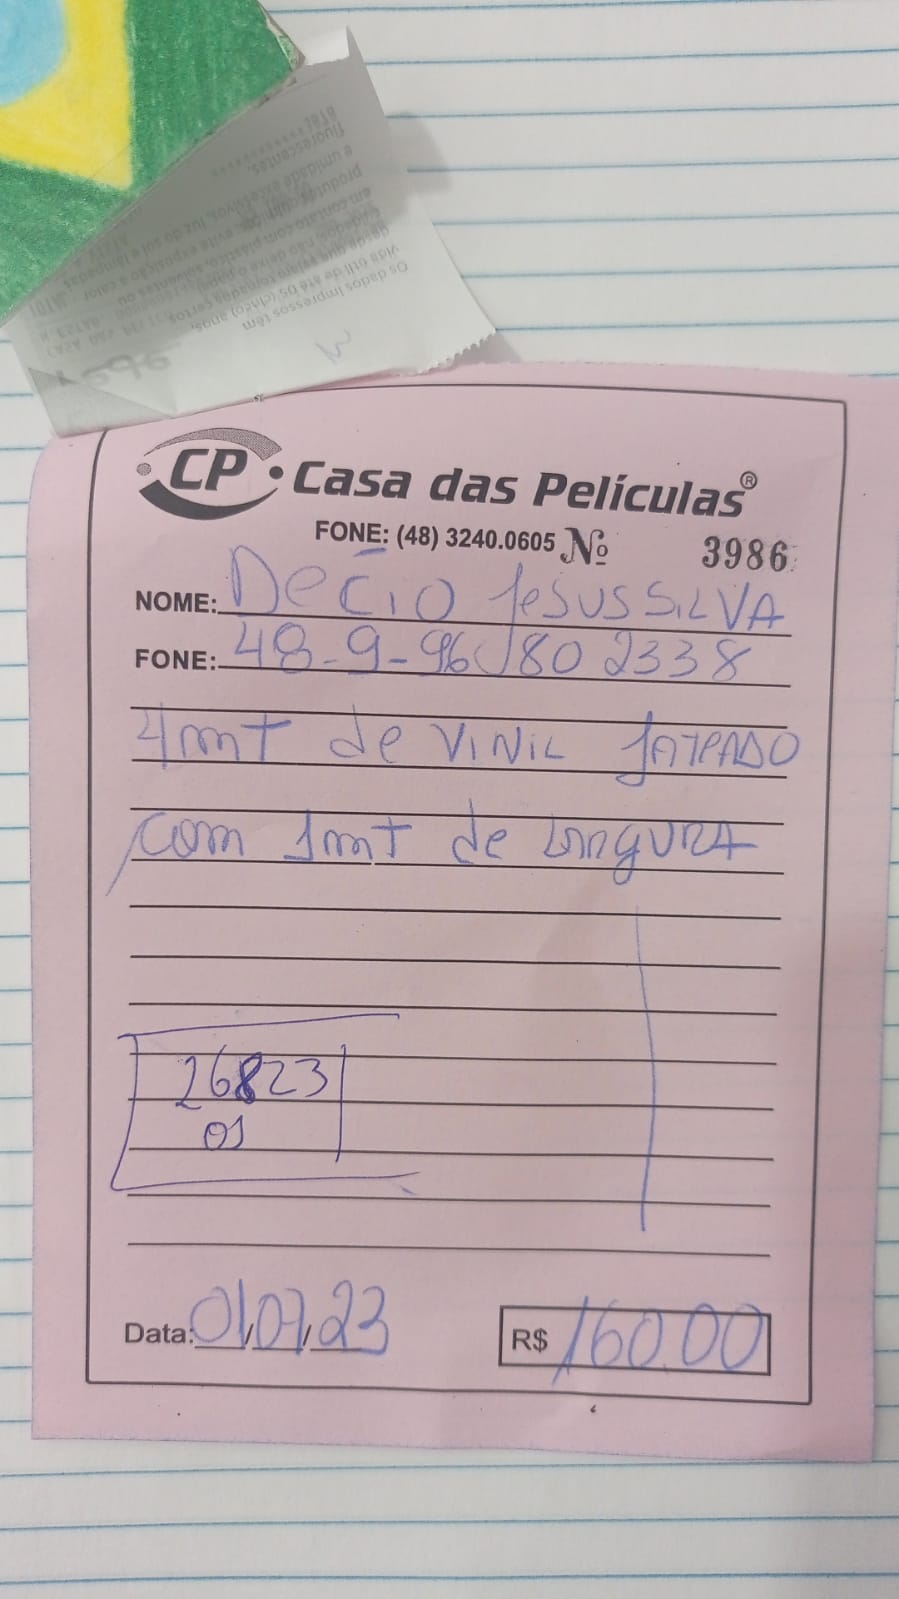 Os dados impressos têm
vida útil de até 05 (cinco) anos,
desde que
fluorescentes.
CP Casa das Películas®
FONE: (48) 3240.0605 Nº 3986
NOME: DeCiO JeSUS SiLVA
FONE: 48-9-96 802338
4mT de ViNiL JATEADO
com 1mT de LARgURA
26823
OS
Data: 01/07/23 R$ 160.00